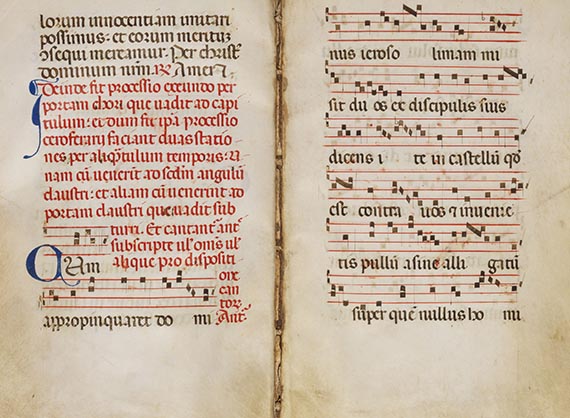 lorum innocentiam imitari
possimus: et eorum meritis
consequi mereamur. Per christum
dominum nrm. R. Amen.
Deinde fit processio exeundo per
portam chori que uadit ad capi
tulum: et dum fit ipsa processio
ceroferarij faciant duas statio
nes per aliquantulum temporis: u
nam cum uenerit ad secundum angulum
claustri: et aliam cum uenerint ad
portam claustri que uadit sub
turri. Et cantant ant
subscripte uel omnes uel
Cum alique pro dispositi
one
can
tor
appropinquaret do mi Ant
nus ieroso limam mi
sit du os ex discipulis suis
dicens i te in castellum quod
est contra uos et inuenie
tis pullum asine alli gatum
super quem nullus ho mi